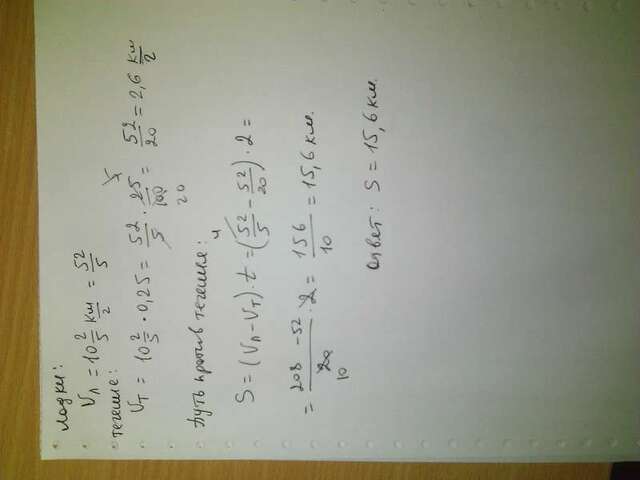 лодки:
Vл = 10 2/5 км/г = 52/5
течение:
Vт = 10 2/5 · 0,25 = 52/5 · 25/100 = 52/20 = 2,6 км/г
5 20
Путь против течения:
S = (Vл - Vт) · t = (52/5 - 52/20) · 2 =
4
= (208 - 52)/20 · 2 = 156/10 = 15,6 км.
10
Ответ: S = 15,6 км.